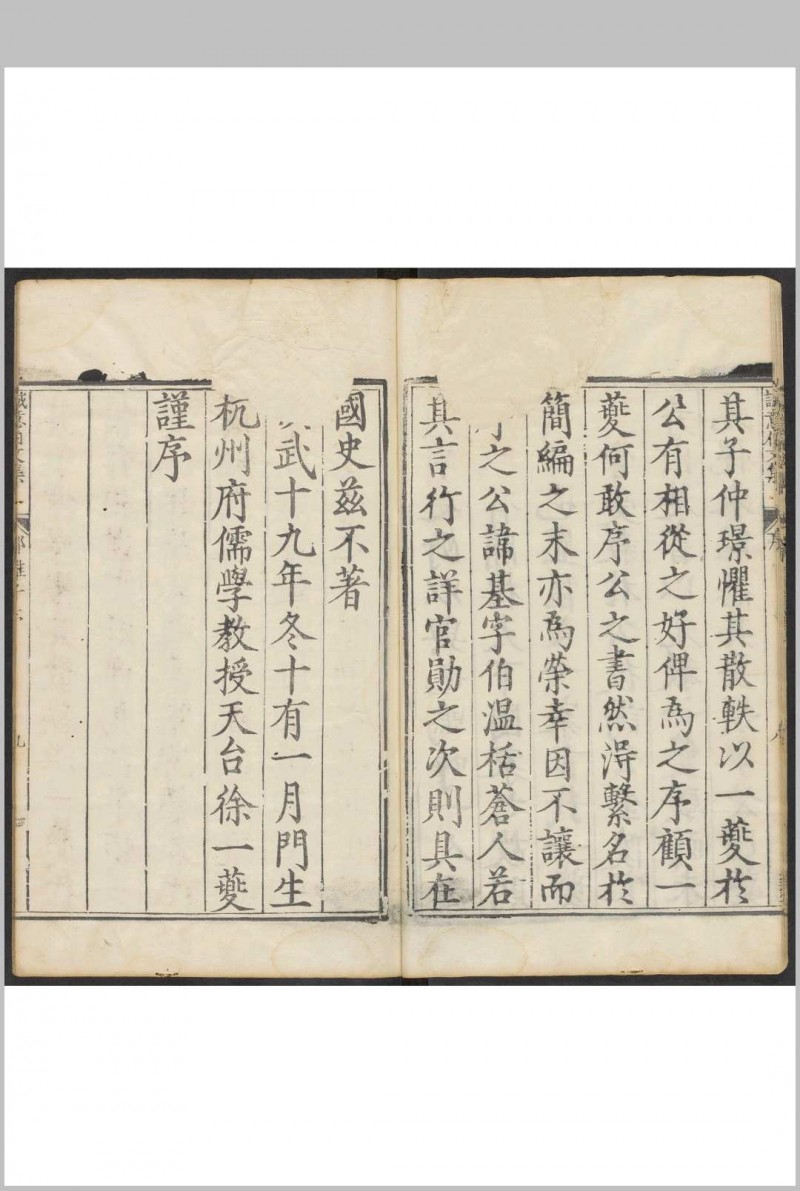 其子仲璟懼其散軼以一夔於
公有相從之好俾為之序顧一
夔何敢序公之書然得繫名於
簡編之末亦為榮幸因不讓而
之公諱基字伯溫栝蒼人若
其言行之詳官勛之次則具在
國史茲不著
武十九年冬十有一月門生
杭州府儒學教授天台徐一夔
謹序
誠意伯文集
序
九